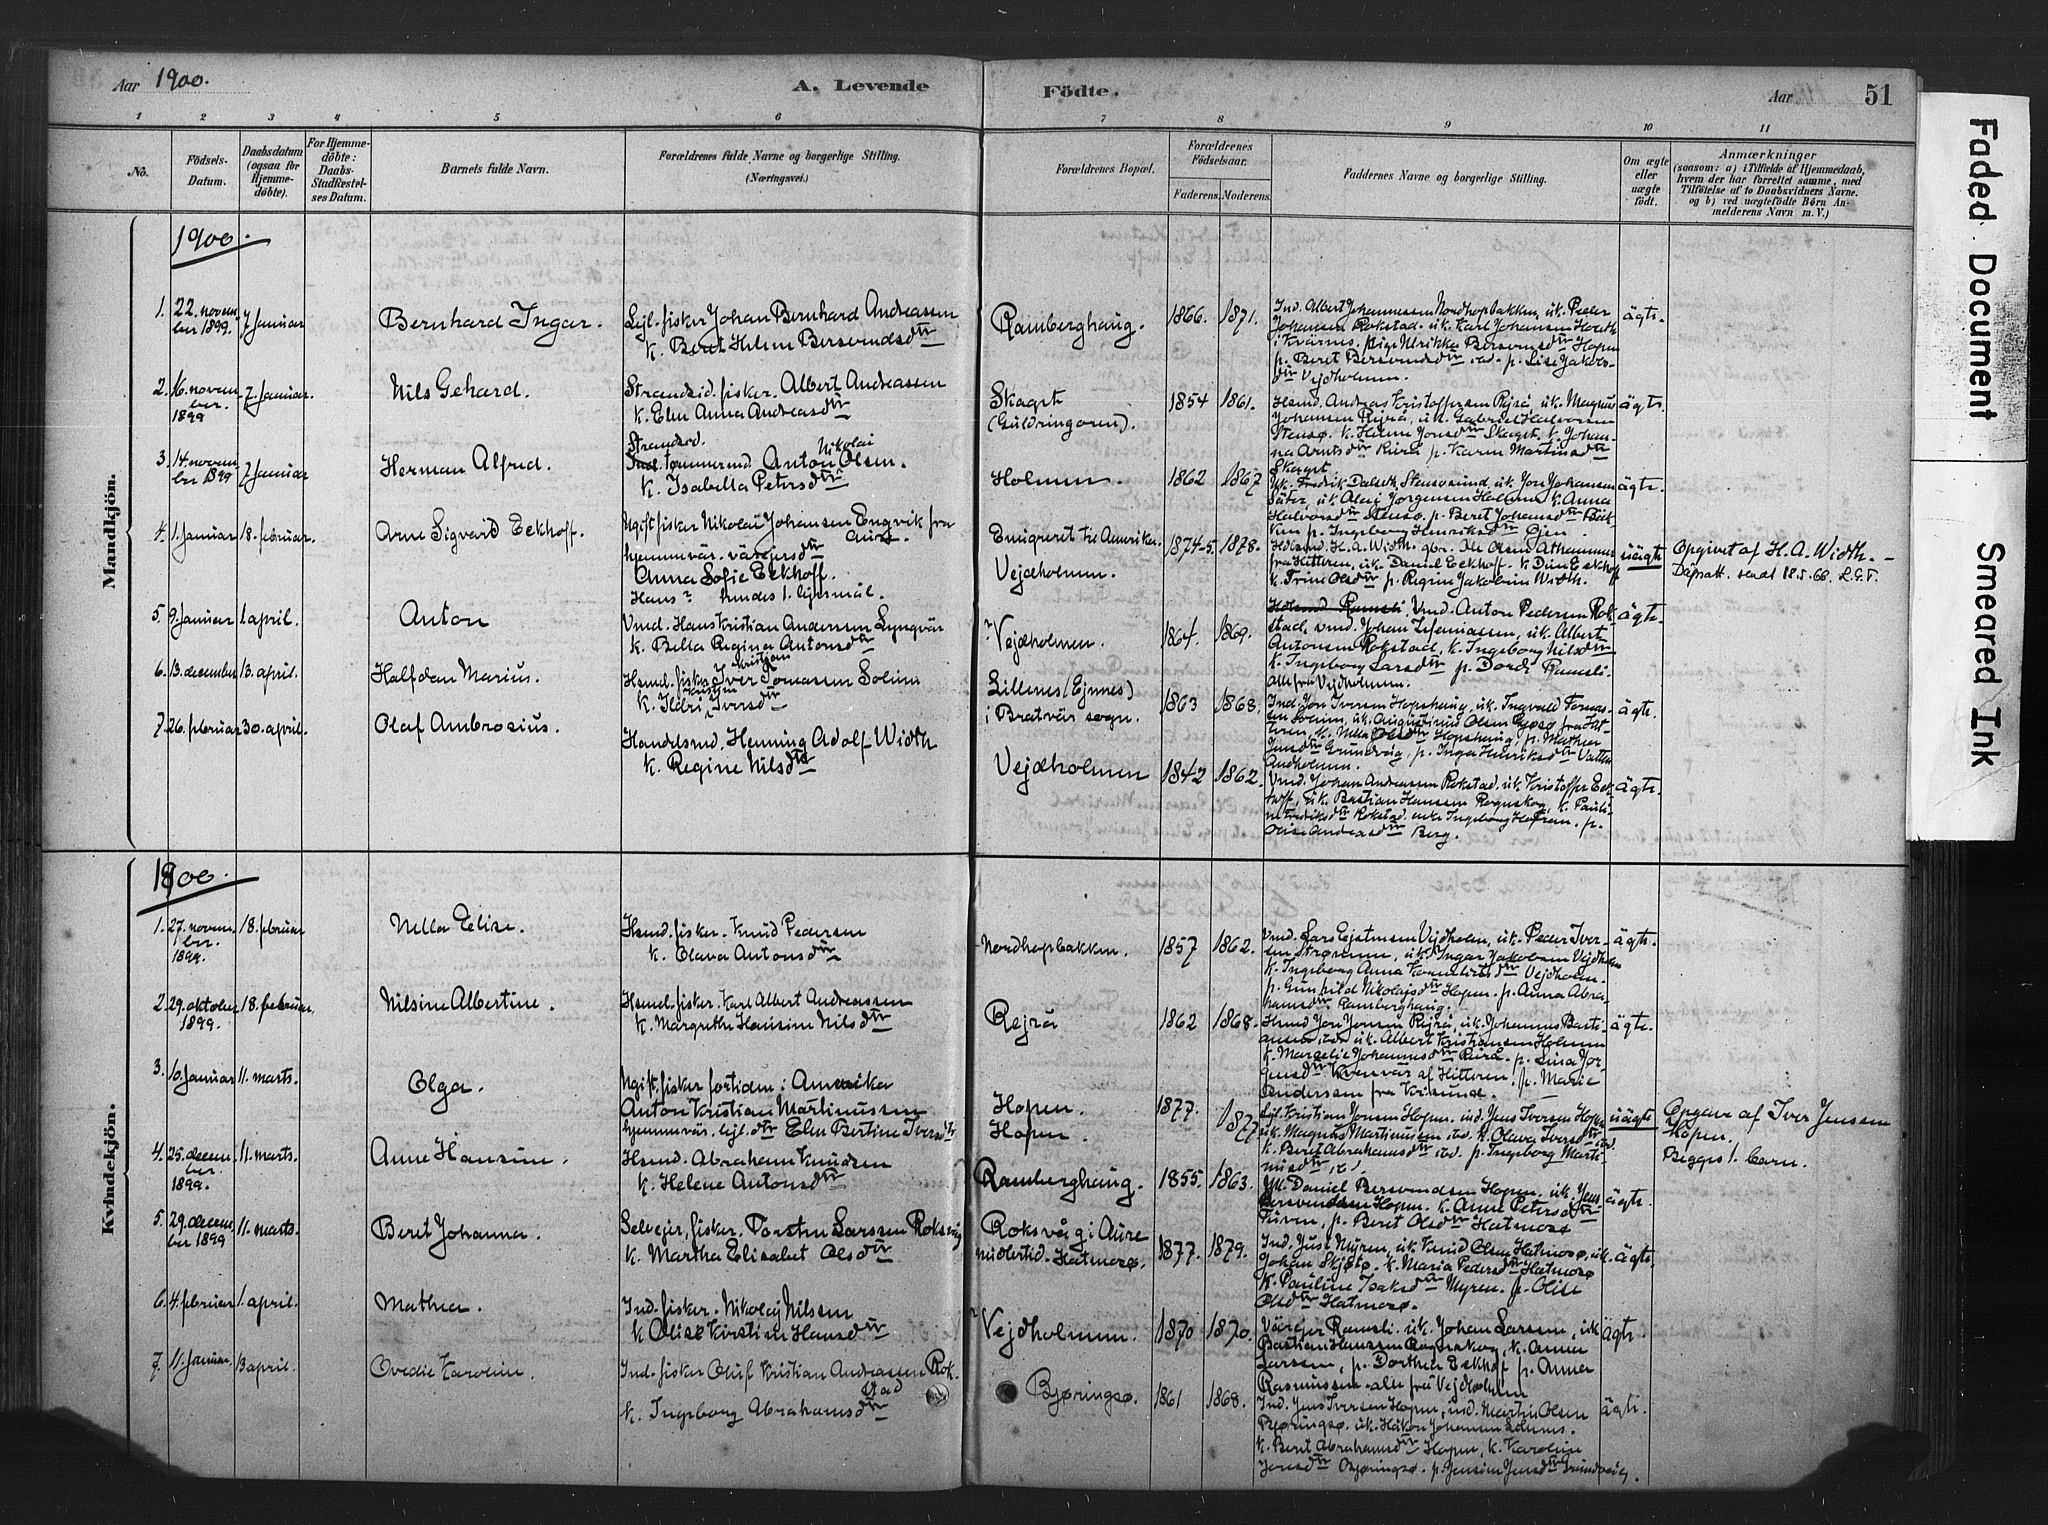 Aar 1900.
A. Levende
Födte.
Aar
51
1 2 3 4 5 6 7 8 9 10 11
No.
Födsels-
Datum.
Daabsdatum
(ogsaa for
Hjemme-
döbte).
For Hjemme-
döbte:
Daabs-
Stadfæstel-
ses Datum.
Barnets fulde Navn.
Forældrenes fulde Navne og borgerlige Stilling.
(Næringsvei.)
Forældrenes Bopæl.
Forældrenes
Födselsaar.
Faderens. Moderens.
Faddernes Navne og borgerlige Stilling.
Om ægte
eller
uægte
födt.
Anmærkninger
(saasom: a) i Tilfælde af Hjemmedaab,
hvem der har forrettet samme, med
Tilföielse af to Daabsvidners Navne,
og b) ved uægtefödte Börn An-
melderens Navn m. V.)
Mandkjön.
1900.
1. 22. novem
ber 1899. 7 Januar
Bernhard Ingar.
Lejl. fisker Johan Bernhard Andreassen
k. Beret Helene Bersvendsdtr
Ramberghaug.
1866. 1871.
Ind. Albert Johannessen Nordhopbakken, uk. Peder
Johansen Rokstad. uk. Karl Johansen
p. Beret Bersvendsdtr ibd. p. Lise Jakobs-
dtr Vejdholmen.
ägte.
2. 16. novem
ber.
1899 7. Januar.
Nils Gehard.
Strandsid. fisker. Albert Andreassen
k. Elen Anna Andreasdtr
Skaget
(Guldringøren).
1854 1861.
Hsmd. Andreas Kristoffersen Rejrø, uk. Magnus
Johansen Rejrø, uk. Gabriel Halvorsen
Stensø. k. Hanna Jonsdtr Skaget. k. Johan-
na Arntsdtr Rejrø p. Karen Martinsdtr
Skaget
ägte.
3. 14. novem
ber 1899 7 Januar
Herman Alfred.
Strandsd.
Ind. tømmermd Anton Nikolai Olsen.
k. Isabella Petersdtr
Holmen.
1862 1867
uk. Jon Johansen
Säter, uk. Olaj Jørgensen Holmen k. Anna
Halvorsdtr Stensø. p. Beret Johansdtr
p. Ingeborg Henriksdtr Øien.
ägte.
4. 1. Januar 18. februar.
Arne Sigvard Eckhoff.
Ugift fisker Nikolai Johansen Engvik fra
Aure.
hjemmevär. värejersdtr
Anna Sofie Eckhoff.
Hans? hendes 1. lejermål.
Emigreret til Amerika.
Vejdholmen.
1874-5. 1878.
Hdlsmd. H. A. Width. gbr. Ole Olsen
fra Hitteren, uk. Daniel Eckhoff. k. Dina Eckhoff
k. Trine Olsdtr p. Regine Jakobine Width.
uägte
Opgivet af H. A. Width. -
Dåpsatt. sendt 18.5.66. L.G.F.
5. 9. Januar 1. april.
Anton
Vmd. Hans Kristian Andersen Lyngvär
k. Bella Regina Antonsdtr
Vejdholmen.
1864. 1869.
Vmd. Anton Pedersen Rok-
stad, vmd. Johan Zefaniassen, uk. Albert
Antonsen Rokstad, k. Ingeborg Nilsdtr
k. Ingeborg Larsdtr p. Dorde Ramsli.
alle fra Vejdholmen.
ägte.
6. 13. december 13. april.
Halfdan Marius.
Hsmd. fisker Iver Kristian Tomassen Solem
k. Ildri Kristine Iversdtr
Lillenes (Ejnnes)
i Bratvär sogn.
1863 1868.
Ind. Jon Iversen Hopshaug, uk. Ingvald Tomas-
sen Solem, uk. Augustinus Olsen
k. Nella Olsdtr Hopshaug, p. Mathea
Jensdtr Grundvåg, p. Inga Henriksdtr Vatten
Andholmen.
ägte.
7. 26. februar 30. april.
Olaf Ambrosius.
Handelsmd. Henning Adolf Width
k. Regine Nilsdtr
Vejdholmen
1842 1862.
Vmd. Johan Andreassen Rokstad. uk. Kristoffer Eck-
hoff, uk. Bastian Hansen Rognskog, k. Pauli-
ne Fredriksdtr Rokstad. enke Ingeborg Hofren. p.
Olise Andreasdtr Berg.
ägte.
Kvindekjön.
1900.
1. 27. novem
ber.
1899. 18. februar
Nella Elise.
Hsmd. fisker. Knud Pedersen
k. Olava Antonsdtr
Nordhopbakken.
1857 1862.
Vmd. Lars Ejstensen Vejdholm, uk. Peder Iver-
sen Strømmen, uk. Ingar Jakobsen Vejdholm
k. Ingeborg Anna Korneliusdtr Vejdholm.
p. Gunhild Nikolajsdtr Hopen. p. Anna Abra-
hamsdtr Ramberghaug.
ägte.
2. 29. oktober
1899. 18. februar
Nilsine Albertine.
Hsmd. fisker. Karl Albert Andreassen
k. Margrethe Hansine Nilsdtr
Rejrø
1862 1868.
Hsmd Jon Jonsen Rejrø, uk. Johannes Basti-
ansen, ibd uk. Albert Kristiansen Holmen
k. Margelie Johannesdtr Rejrø. p. Lina Jør-
gensdtr Kvenvär af Hitteren. p. Marie
Andersen fra Krisund.
ägte.
3. 10. Januar 11. marts.
Olga.
Ugift. fisker fortiden i Amerika
Anton Kristian Martinussen
hjemmevär. lejl.dtr Elen Bertine Iversdtr
Hopen.
Hopen.
1877. 1877
Lejl. Kristian Jonsen Hopen, ind. Jens Iversen Hopen
uk. Magnus Martinussen ibd. k. Olava Iversdtr ibd.
k. Beret Abrahamsdtr ibd. p. Ingeborg Marti-
nusdtr ibd.
uägte
Opgave af Iver Jenssen
Hopen.
Begges 1. barn.
4. 25. decem
ber.
1899. 11. marts.
Anne Hansine.
Hsmd. Abraham Knudsen
k. Helene Antonsdtr
Ramberghaug.
1855. 1863.
Daniel Bersvendsen Hopen. uk. Jens
Bersvendsen Hopen. k. Anne Petersdtr
p. Beret Olsdtr Hatmosø
ägte.
5. 29. decem
ber 1899 11. marts.
Beret Johanna.
Selvejer, fisker. Torsten Larssen Roksvåg
k. Martha Elisabet Olsdtr
Roksvåg i Aure
midlertid. Hatmosø.
1877. 1879.
Ind. Just Myren, uk. Knud Olsen Hatmosø, uk.
Johan Skjøtø. k. Maria Pedersdtr Hatmosø
k. Pauline Isaksdtr Myren. p. Olise
Olsdtr Hatmosø.
ägte.
6. 4. februar 1. april.
Mathea.
Ind. fisker. Nikolaj Nilssen
k. Olise Kirstine Hansdtr
Vejdholmen.
1870 1870.
Värejer Ramsli. uk. Johan Larssen, uk
Bastian Hanssen Rognskog, k. Anna
Larssen, p. Dorthea Eckhof p. Anna
Rasmussen. alle fra Vejdholmen
ägte.
7. 11. Januar. 13 april.
Ovedie Karoline.
Ind. fisker Oluf Kristian Andreassen Rok-
stad
k. Ingeborg Abrahamsdtr
Bjøringsø.
1861 1868.
Ind. Jens Iversen Hopen, ind. Martin Olsen
Bjøringsø. uk. Håkon Johannesen
k. Beret Abrahamsdtr Hopen, k. Karoline
Jensdtr Bjøringsø. p. Jensine Jensdtr Grundvåg.
ägte.
Faded Document Smeared Ink